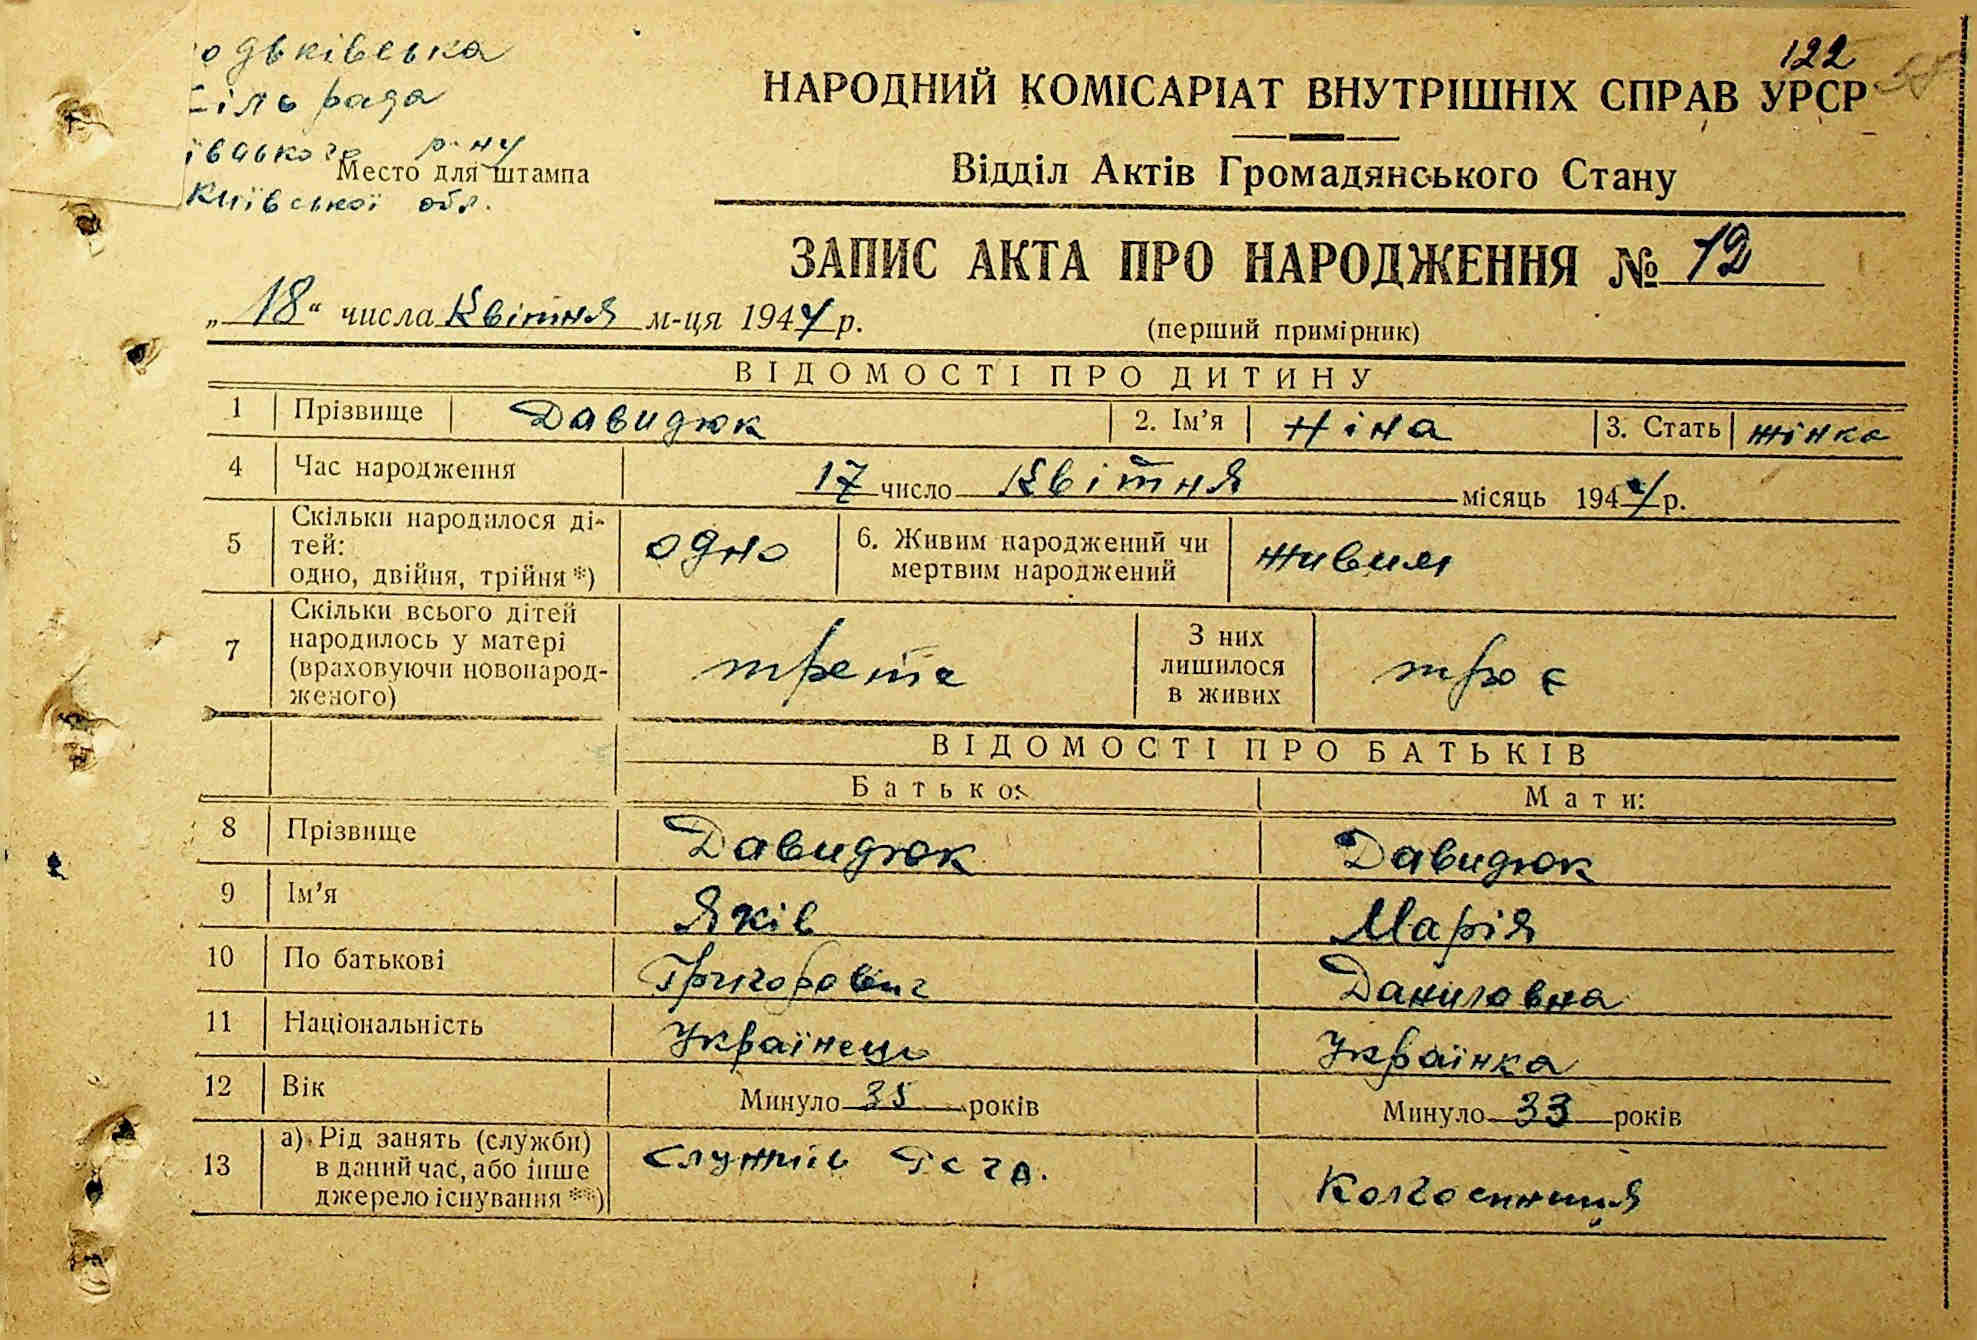 122
одьківська
Сільрада
івського р-ну
Место для штампа
Київської обл.
НАРОДНИЙ КОМІСАРІАТ ВНУТРІШНІХ СПРАВ УРСР
Відділ Актів Громадянського Стану
ЗАПИС АКТА ПРО НАРОДЖЕННЯ № 12
„18“ числа Квітня м-ця 1947 р.
(перший примірник)
ВІДОМОСТІ ПРО ДИТИНУ
1 Прізвище Давидюк 2. Ім’я Ніна 3. Стать жінка
4 Час народження 17 число Квітня місяць 1947 р.
5 Скільки народилося ді-
тей:
одно, двійня, трійня *) одно 6. Живим народжений чи
мертвим народжений живим
7 Скільки всього дітей
народилось у матері
(враховуючи новонарод-
женого) третє З них
лишилося
в живих троє
ВІДОМОСТІ ПРО БАТЬКІВ
Батько: Мати:
8 Прізвище Давидюк Давидюк
9 Ім’я Яків Марія
10 По батькові Григорович Даниловна
11 Національність Українець Українка
12 Вік Минуло 35 років Минуло 33 років
13 а) Рід занять (служби)
в даний час, або інше
джерело існування **) Колгоспниця